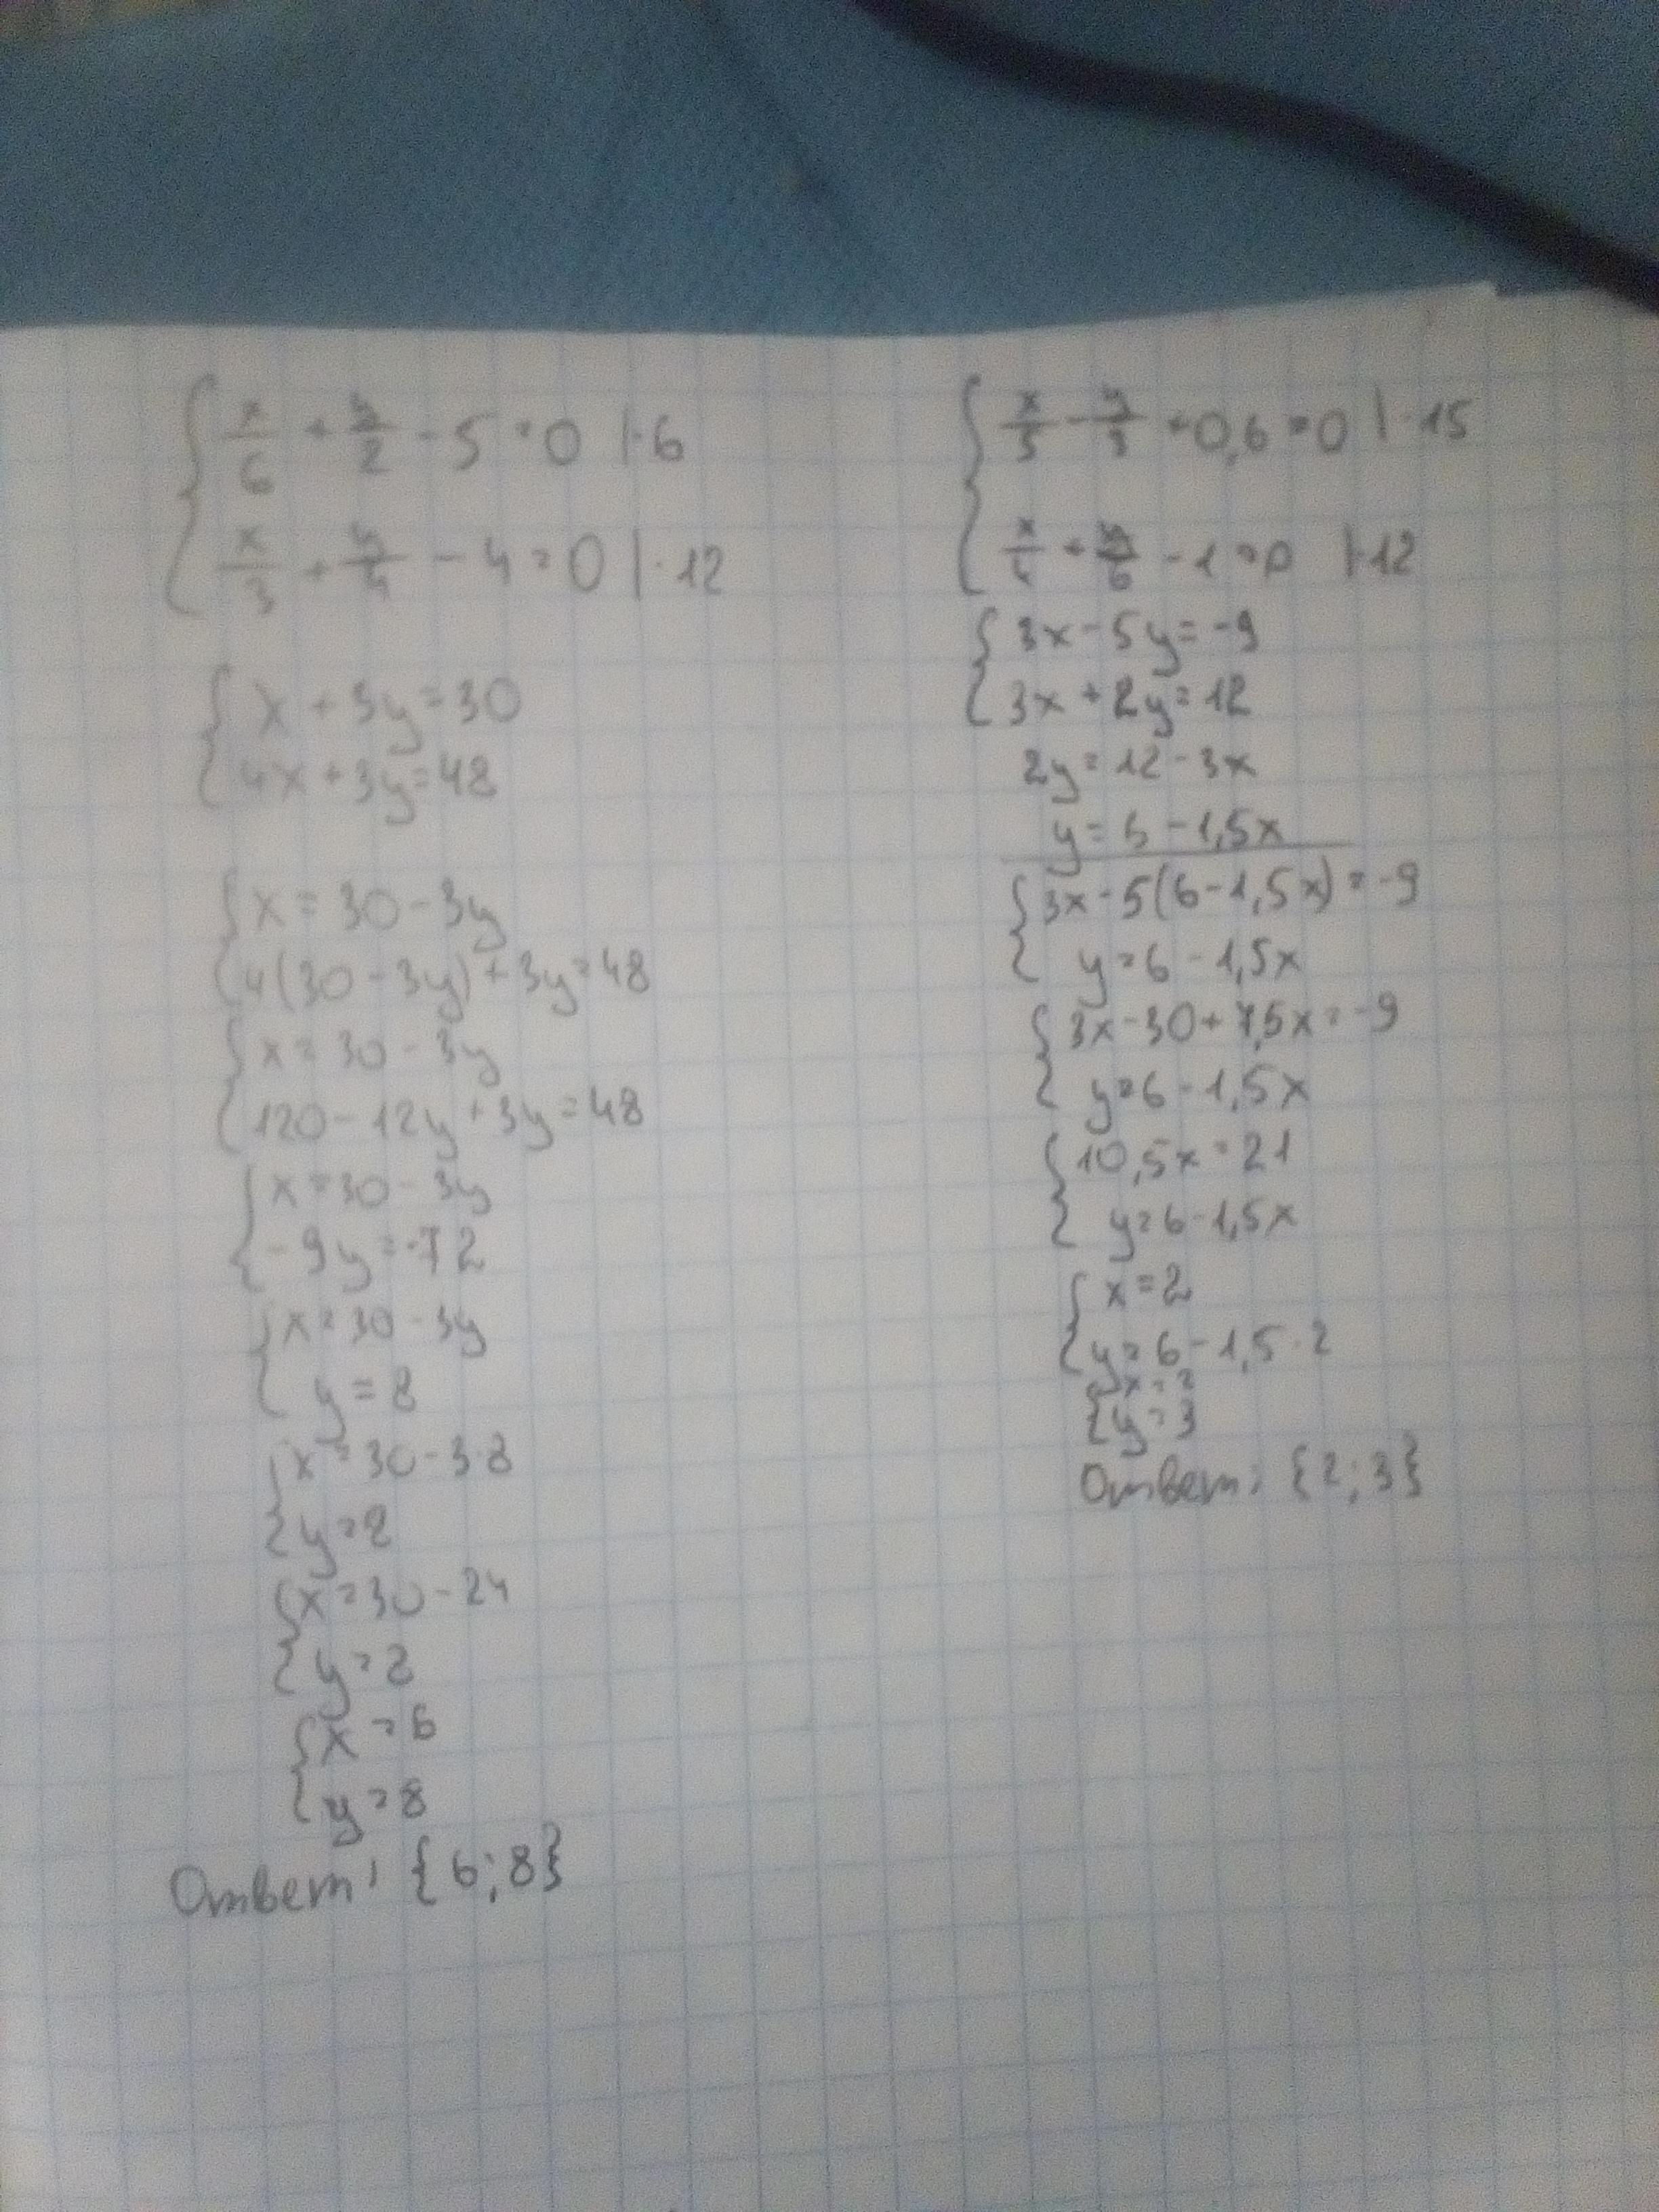 { x/6 + y/2 - 5 = 0 | · 6
x/3 + y/4 - 4 = 0 | · 12
{ x + 3y = 30
4x + 3y = 48
{ x = 30 - 3y
4(30 - 3y) + 3y = 48
{ x = 30 - 3y
120 - 12y + 3y = 48
{ x = 30 - 3y
- 9y = -72
{ x = 30 - 3y
y = 8
{ x = 30 - 3·8
y = 8
{ x = 30 - 24
y = 8
{ x = 6
y = 8
Ответ: {6; 8}
{ x/5 - y/3 + 0,6 = 0 | · 15
x/4 + y/6 - 1 = 0 | · 12
{ 3x - 5y = -9
3x + 2y = 12
2y = 12 - 3x
y = 6 - 1,5x
{ 3x - 5(6 - 1,5x) = -9
y = 6 - 1,5x
{ 3x - 30 + 7,5x = -9
y = 6 - 1,5x
{ 10,5x = 21
y = 6 - 1,5x
{ x = 2
y = 6 - 1,5 · 2
{ x = 2
y = 3
Ответ: {2; 3}